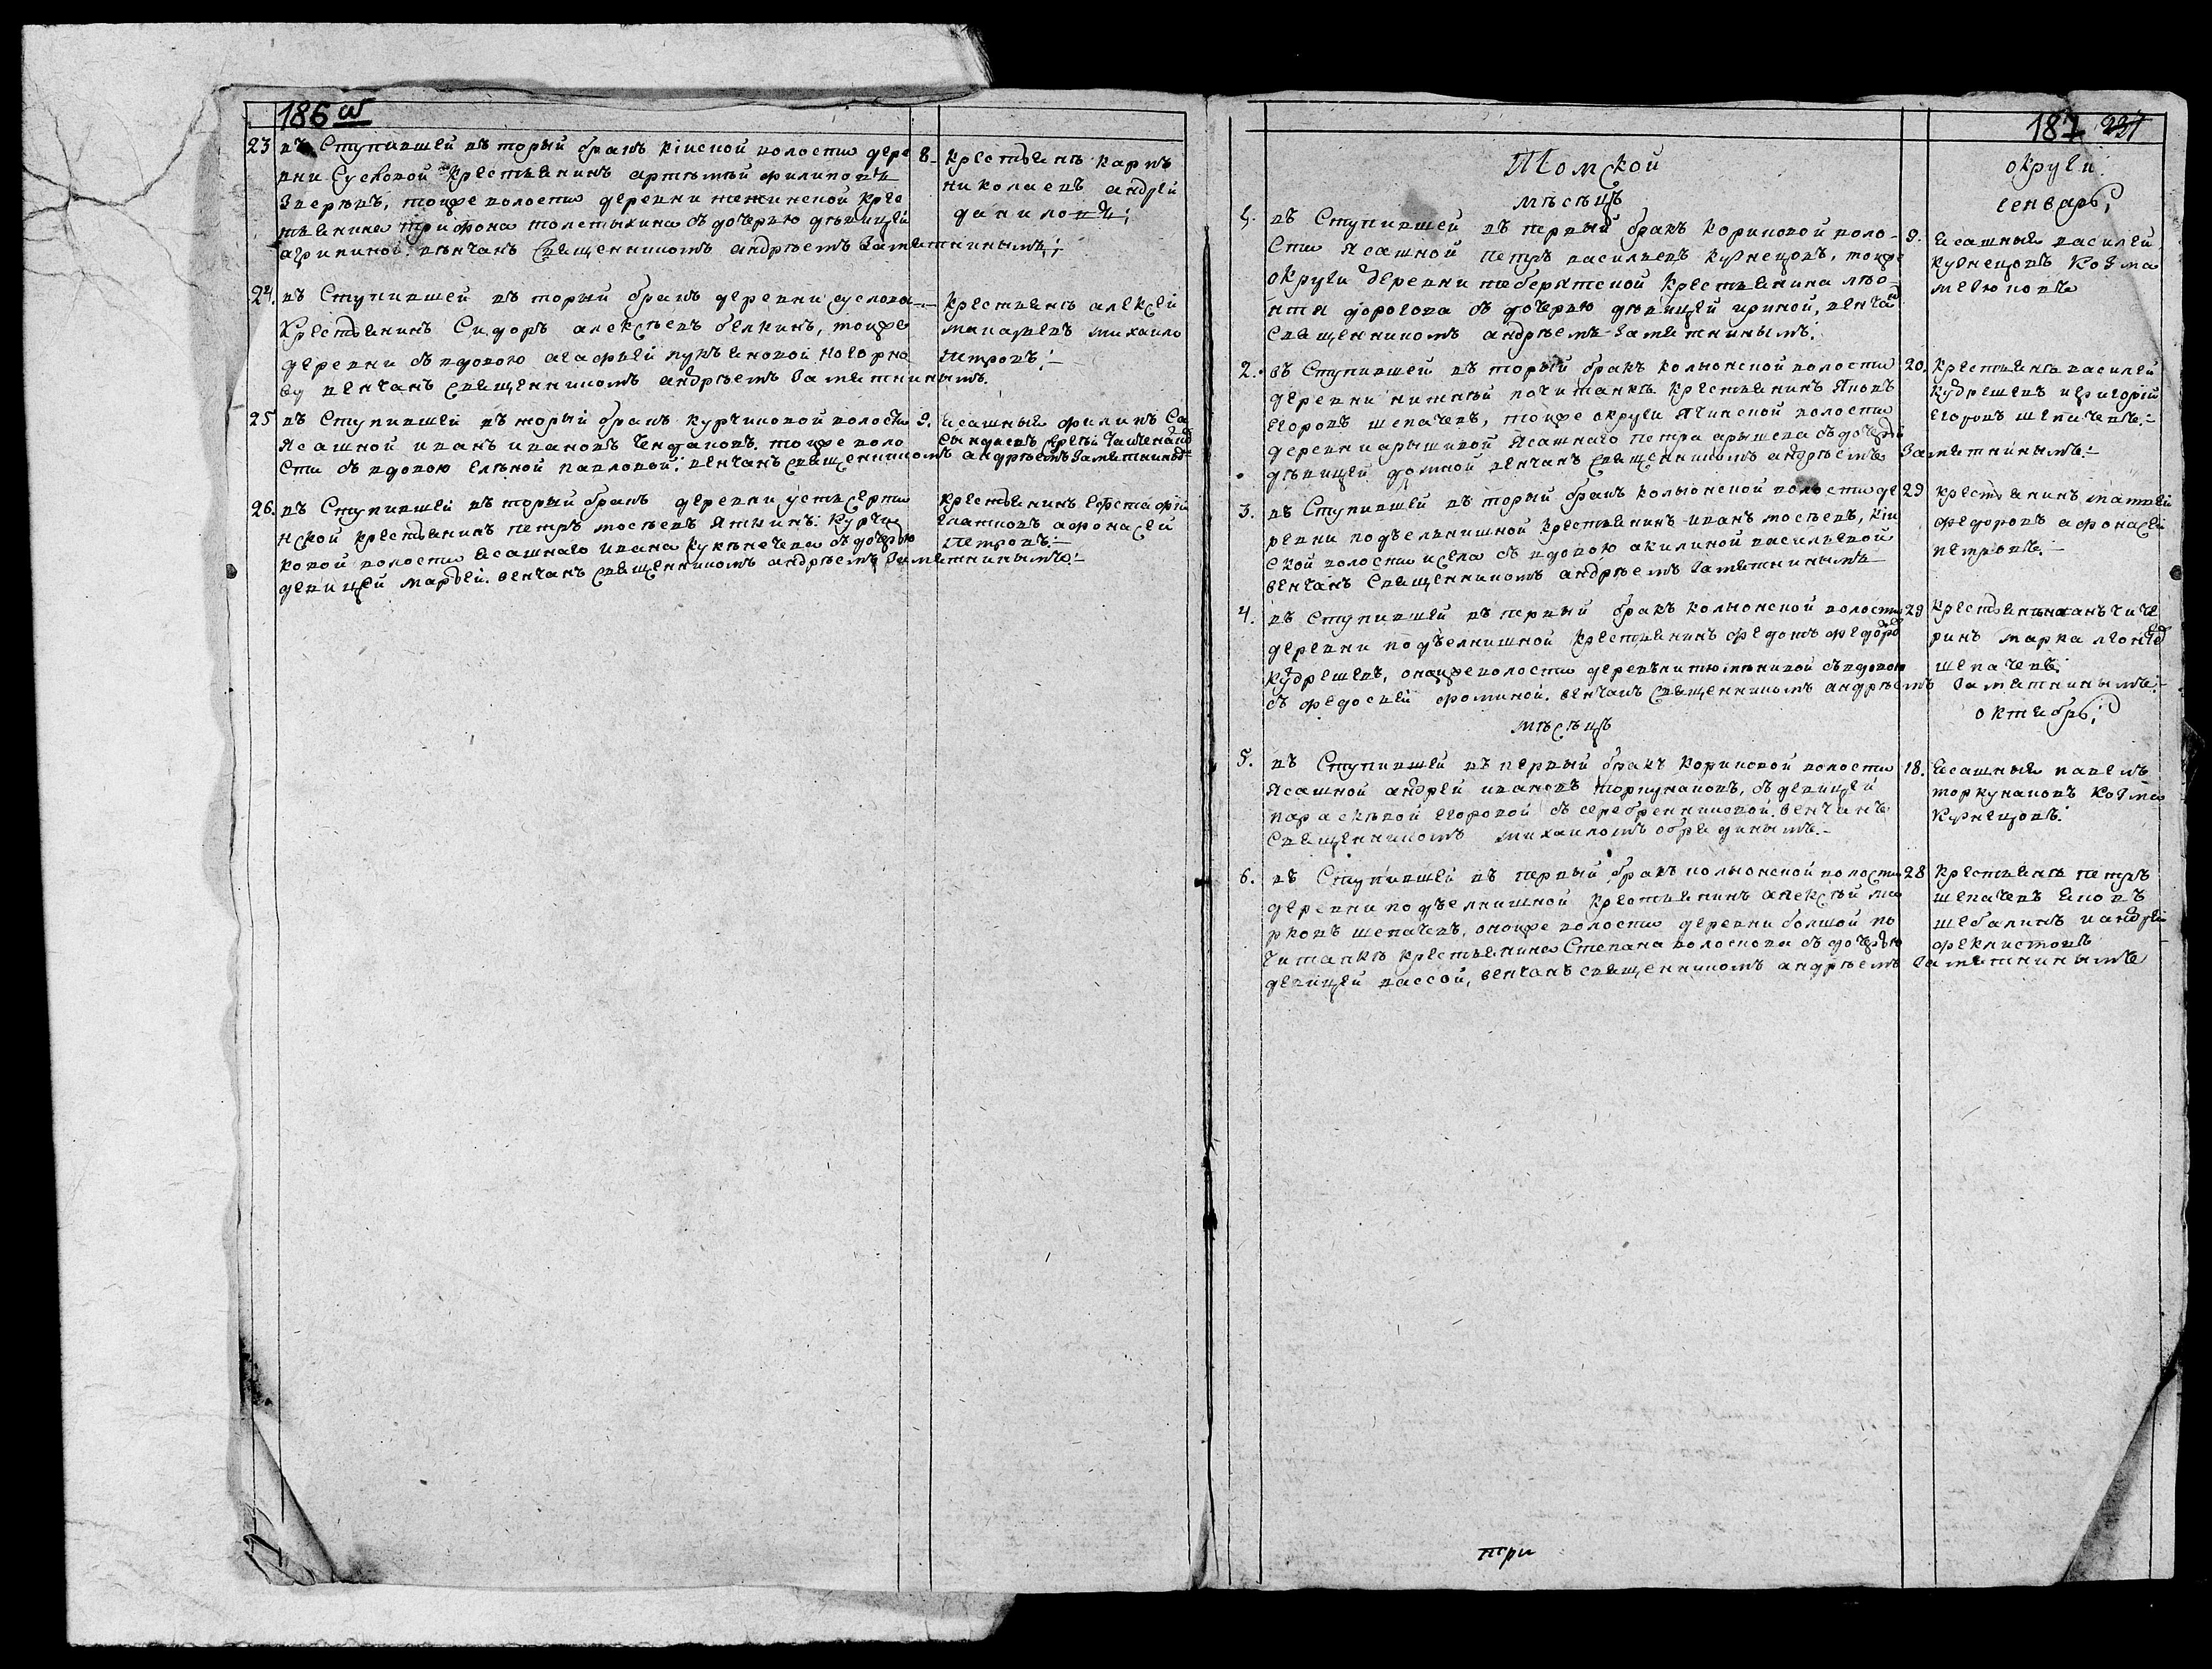 186 об
23 въ Ступившей въ торый бракъ кiиской волости дере
вни Сусловой крестьянинъ артѣмѣй филиповъ
Зверѣвъ, тоиже волости деревни тежинской крес
тьянина трифона толстыхина съ дочерью дѣвицей
агрипиной. вѣнчанъ Священникомъ андрѣемъ Замятнинымъ;
8. крестьянѣ карпъ
николаевъ андрей
даниловъ;
24. въ Ступившей въ торый бракъ деревни суслова
крестьянинъ Сидоръ алексѣевъ белкинъ, тоиже
деревни съ вдовою агафьей лукьяновой
венчанъ священникомъ андрѣемъ Замятнинымъ.
крестьянѣ алексей
михаило
петровъ:
25 въ Ступившей въ торый бракъ курчиковой волости
Ясашной иванъ ивановъ тоиже воло
сти съ вдовою еленой павловой. венчанъ священникомъ андрѣемъ Замятнинымъ
9. ясашныя филипъ
26. въ Ступившей въ торый бракъ деревни усть серти
нской крестьянинъ петръ мосѣевъ Яткинъ. курчи
ковой волости ясашнаго ивана съ дочерью
девицей марѳей. венчанъ священникомъ андрѣемъ Замятнинымъ:
крестьянинъ евстафiй
афонасей
петровъ:
187 237
Томской округи:
мѣсецъ генварь;
1. въ Ступившей въ первый бракъ кориковой воло-
сти Ясашной петръ васильевъ кузнецовъ, тоиже
округи деревни теберятской крестьянина лѣо-
нтя дорогова съ дочерью дѣвицей ириной, венчан
священникомъ андрѣемъ Замятнинымъ:
9. ясашныя василей
кузнецовъ козма
2. въ Ступившей въ торый бракъ колыонской волости
деревни нижнѣй почитанкѣ крестьянинъ Яковъ
егоровъ щепачевъ, тоиже округи ячинской волости
деревни арышивой Ясашнаго петра арышева съ дочерью
дѣвицей домной венчанъ священникомъ андрѣемъ Замятнинымъ:
20. крестьянѣ василей
кудрешевъ игригорiй
егоровъ щепачевъ:
3. въ Ступившей въ торый бракъ колыонской волости де
ревни подъельнишной крестьянинъ иванъ мосѣевъ, кiи
ской волости исела съ вдовою акилиной васильевой
венчанъ Священникомъ андрѣемъ Замятнинымъ
29 крестьянинъ матвей
федоровъ афонасей
петровъ:
4. въ Ступившей въ первый бракъ колыонской волости
деревни подъелнишной крестьянинъ федотъ федоро
кудрешевъ, оноиже волости деревѣни тюмѣниковой съ вдовою
съ федосьей фоминой. венчанъ священникомъ андрѣемъ Замятнинымъ:
29 крестьянѣ иванъ чиче
ринъ марка
щепачевъ.
мѣсяцъ октябрь;
5. въ Ступившей въ первый бракъ кориковой волости
Ясашной андрей ивановъ торкунаковъ, съ девицей
параскѣвой егоровой съ серебренниковой. венчанъ
Священникомъ михаиломъ обрядинымъ:
18. ясашныя павелъ
торкунаковъ козма
кузнецовъ.
6. въ Ступившей въ первый бракъ колыонской волости
деревни подъелнишной крестьянинъ алексѣй ма
рковъ щепачевъ, оноиже волости деревни болшой по
читанкѣ крестьянина Степана волоскова съ дочерью
девицей вассой, венчанъ священникомъ андрѣемъ замятнинымъ
28 крестьянѣ петръ
щепачевъ яковъ
щебалинъ иандрей
феклистовъ
три